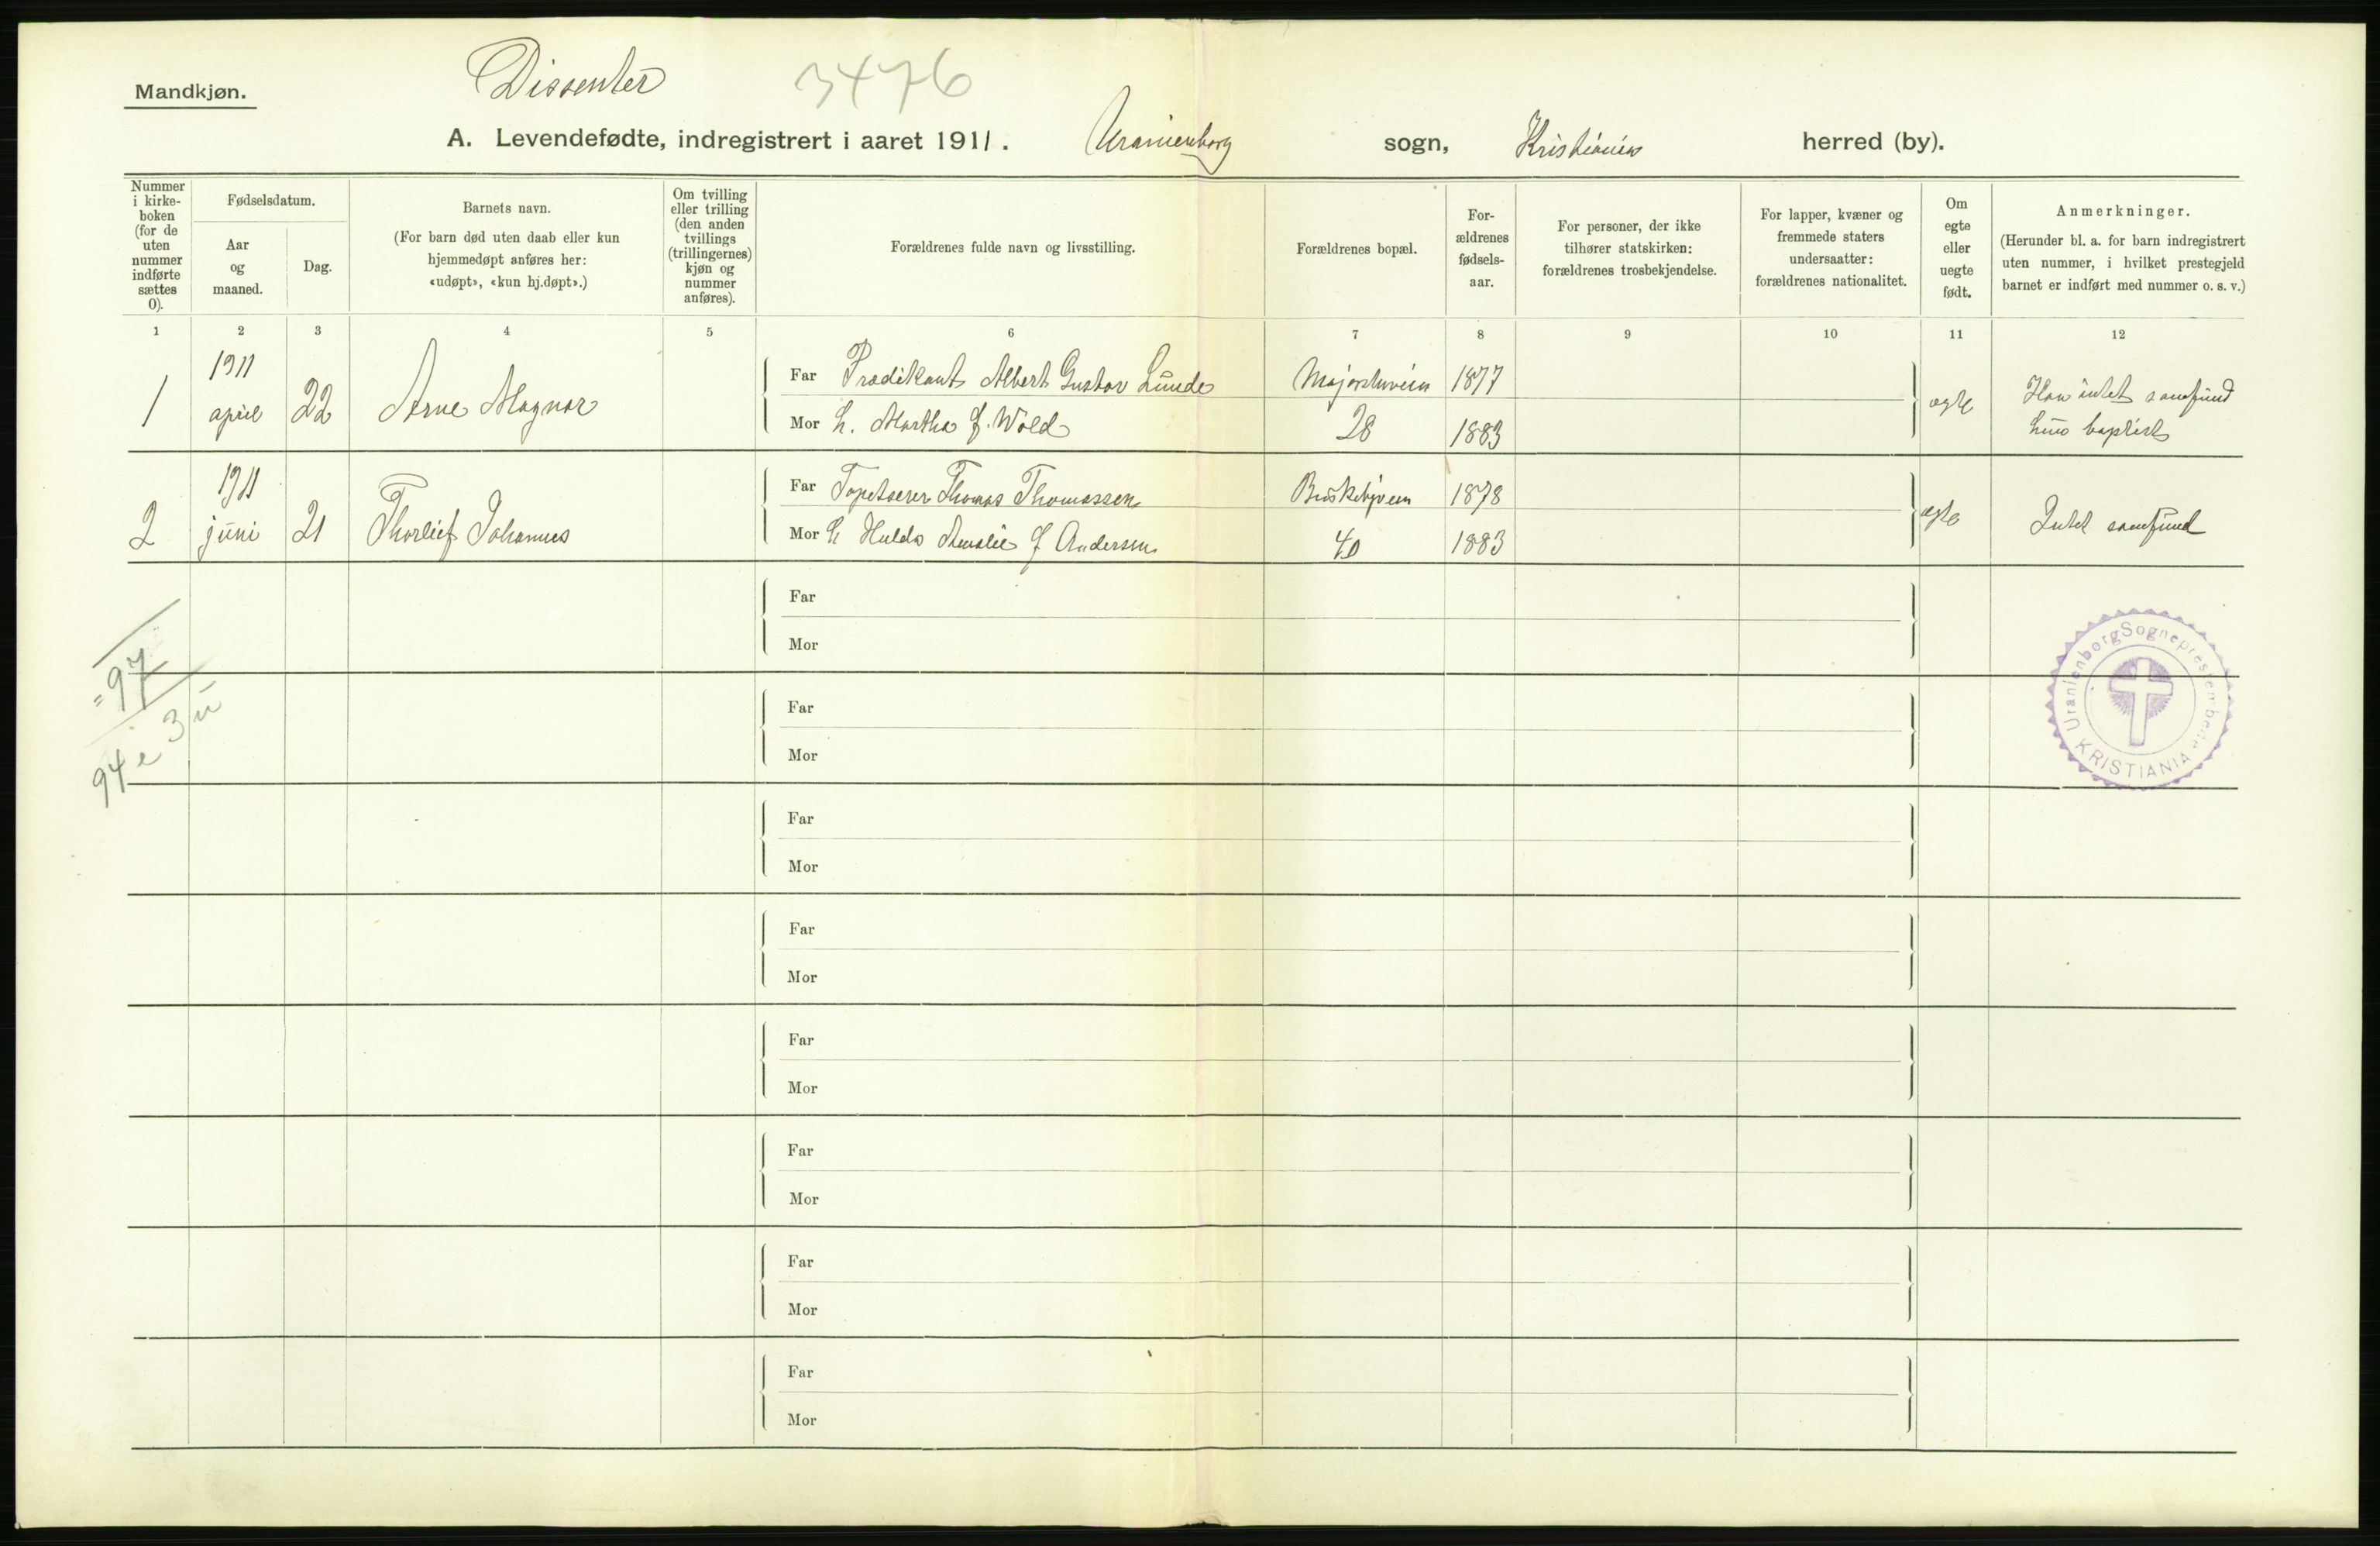 Mandkjøn.
Dissenter
3476
A. Levendefødte, indregistrert i aaret 1911. Uranienborg sogn, Kristiania herred (by).
Nummer
i kirke-
boken
(for de
uten
nummer
indførte
sættes
0).
Fødselsdatum.
Aar
og
maaned.
Dag.
Barnets navn.
(For barn død uten daab eller kun
hjemmedøpt anføres her:
«udøpt», «kun hj.døpt».)
Om tvilling
eller trilling
(den anden
tvillings
(trillingernes)
kjøn og
nummer
anføres).
Forældrenes fulde navn og livsstilling.
Forældrenes bopæl.
For-
ældrenes
fødsels-
aar.
For personer, der ikke
tilhører statskirken:
forældrenes trosbekjendelse.
For lapper, kvæner og
fremmede staters
undersaatter:
forældrenes nationalitet.
Om
egte
eller
uegte
født.
Anmerkninger.
(Herunder bl. a. for barn indregistrert
uten nummer, i hvilket prestegjeld
barnet er indført med nummer o. s. v.)
1 2 3 4 5 6 7 8 9 10 11 12
1 1911 april 22 Arne Magnar
Far Prædikant Albert Gustav Lunde Majorstuveien 1877
Mor h. Martha f. Wold 28 1883
egte
Han intet samfund
hun baptist
2 1911 juni 21 Thorleif Johannes
Far Tapetserer Thomas Thomassen Briskebyveien 1878
Mor h Hulda Amalie f Andersen 40 1883
egte
Intet samfund
Far
Mor
= 97
94 e 3 u
Uranienborg Sogneprestembede
KRISTIANIA
Far
Mor
Far
Mor
Far
Mor
Far
Mor
Far
Mor
Far
Mor
Far
Mor